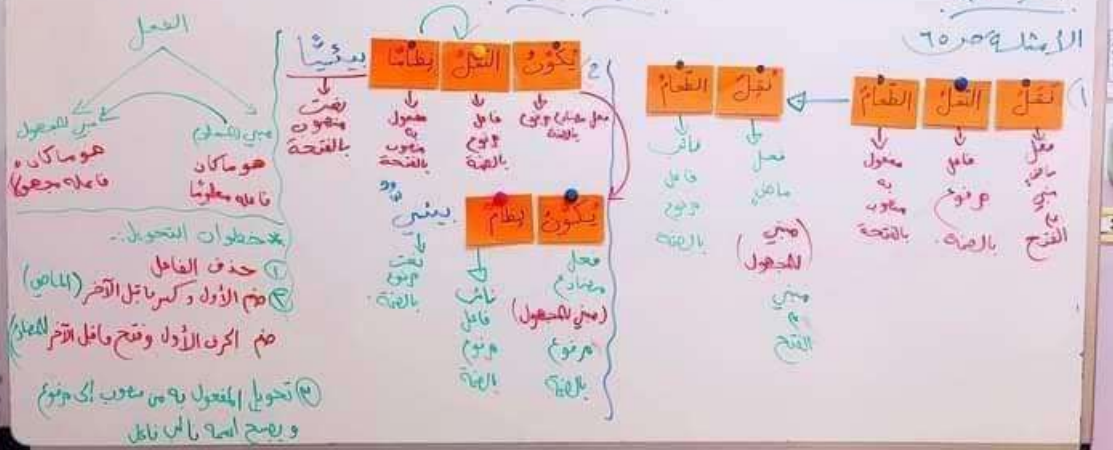 الأمثلة ص ٦٥
١)
نَقَلَ النَّمْلُ الطَّعَامَ
فعل ماضٍ مبني على الفتح
فاعل مرفوع بالضمة.
مفعول به منصوب بالفتحة
نُقِلَ الطَّعَامُ
فعل ماضٍ (مبني للمجهول) مبني على الفتح
نائب فاعل مرفوع بالضمة
2)
يُكَوِّنُ النَّمْلُ نِظَامًا بيئيًّا
فعل مضارع مرفوع بالضمة
فاعل مرفوع بالضمة
مفعول به منصوب بالفتحة
نعت منصوب بالفتحة
يُكَوَّنُ نِظَامٌ بيئيٌّ
فعل مضارع (مبني للمجهول) مرفوع بالضمة
نائب فاعل مرفوع بالضمة
نعت مرفوع بالضمة.
الفعل
مبني للمعلوم
هو ما كان
فاعله معلومًا
مبني للمجهول
هو ما كان
فاعله مجهولًا
*خطوات التحويل:-
① حذف الفاعل
② ضم الأول وكسر ما قبل الآخر (الماضي)
ضم الحرف الأول وفتح ما قبل الآخر (المضارع)
③ تحويل المفعول به من منصوب إلى مرفوع
ويصبح اسمه نائب فاعل